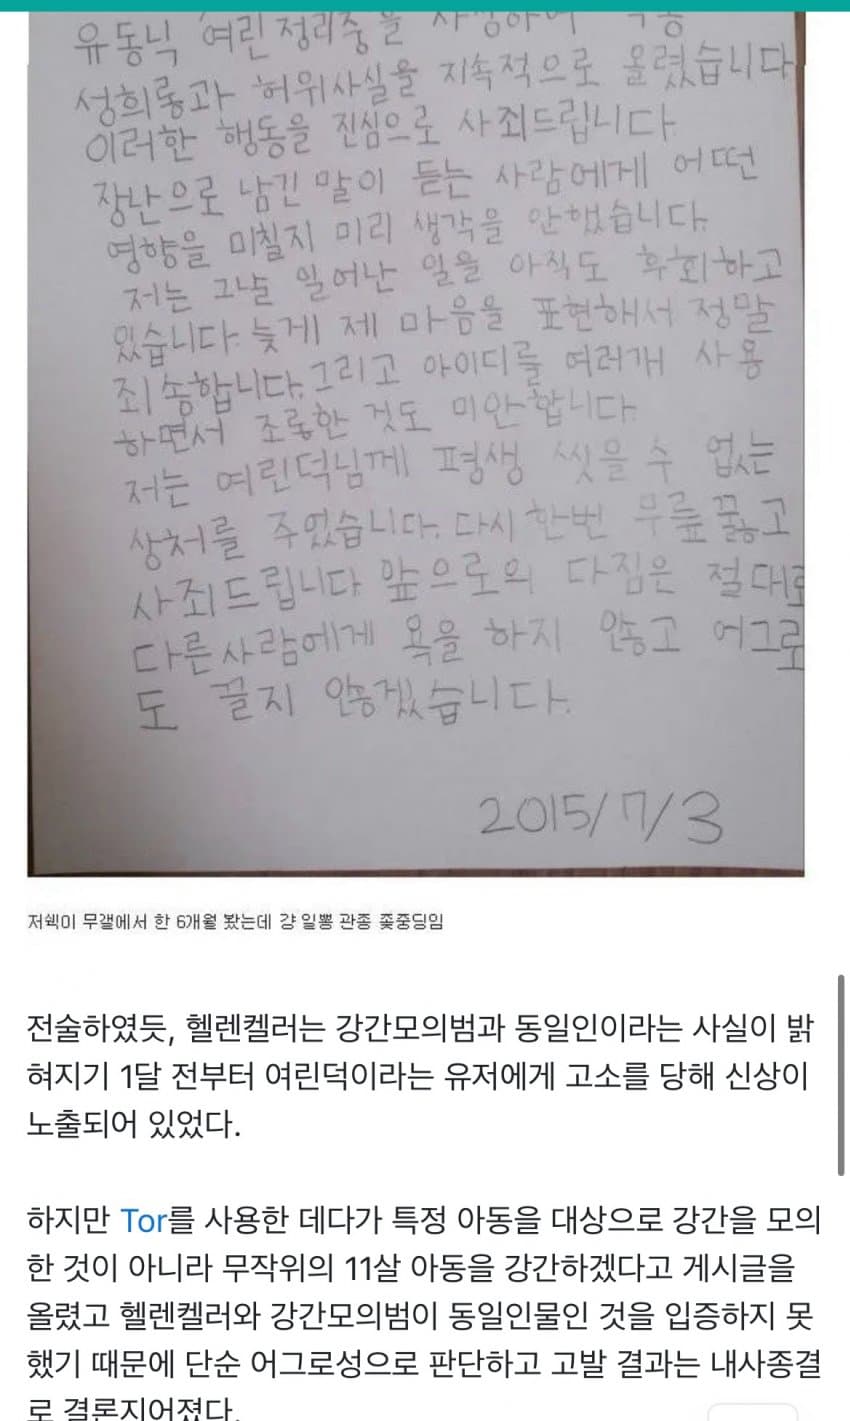 유동닉 여린정리중을 사칭하여
성희롱과 허위사실을 지속적으로 올렸습니다
이러한 행동을 진심으로 사죄드립니다
장난으로 남긴 말이 듣는 사람에게 어떤
영향을 미칠지 미리 생각을 안했습니다.
저는 그날 일어난 일을 아직도 후회하고
있습니다. 늦게 제 마음을 표현해서 정말
죄송합니다. 그리고 아이디를 여러개 사용
하면서 조롱한 것도 미안합니다.
저는 여린덕님께 평생 씻을 수 없는
상처를 주었습니다. 다시 한번 무릎 꿇고
사죄드립니다 앞으로의 다짐은 절대로
다른사람에게 욕을 하지 않고 어그로
도 끌지 않겠습니다.
2015/7/3
저쉑이 무갤에서 한 6개월 봤는데 걍 일뽕 관종 좆중딩임
전술하였듯, 헬렌켈러는 강간모의범과 동일인이라는 사실이 밝
혀지기 1달 전부터 여린덕이라는 유저에게 고소를 당해 신상이
노출되어 있었다.
하지만 Tor를 사용한 데다가 특정 아동을 대상으로 강간을 모의
한 것이 아니라 무작위의 11살 아동을 강간하겠다고 게시글을
올렸고 헬렌켈러와 강간모의범이 동일인물인 것을 입증하지 못
했기 때문에 단순 어그로성으로 판단하고 고발 결과는 내사종결
로 결론지어졌다.